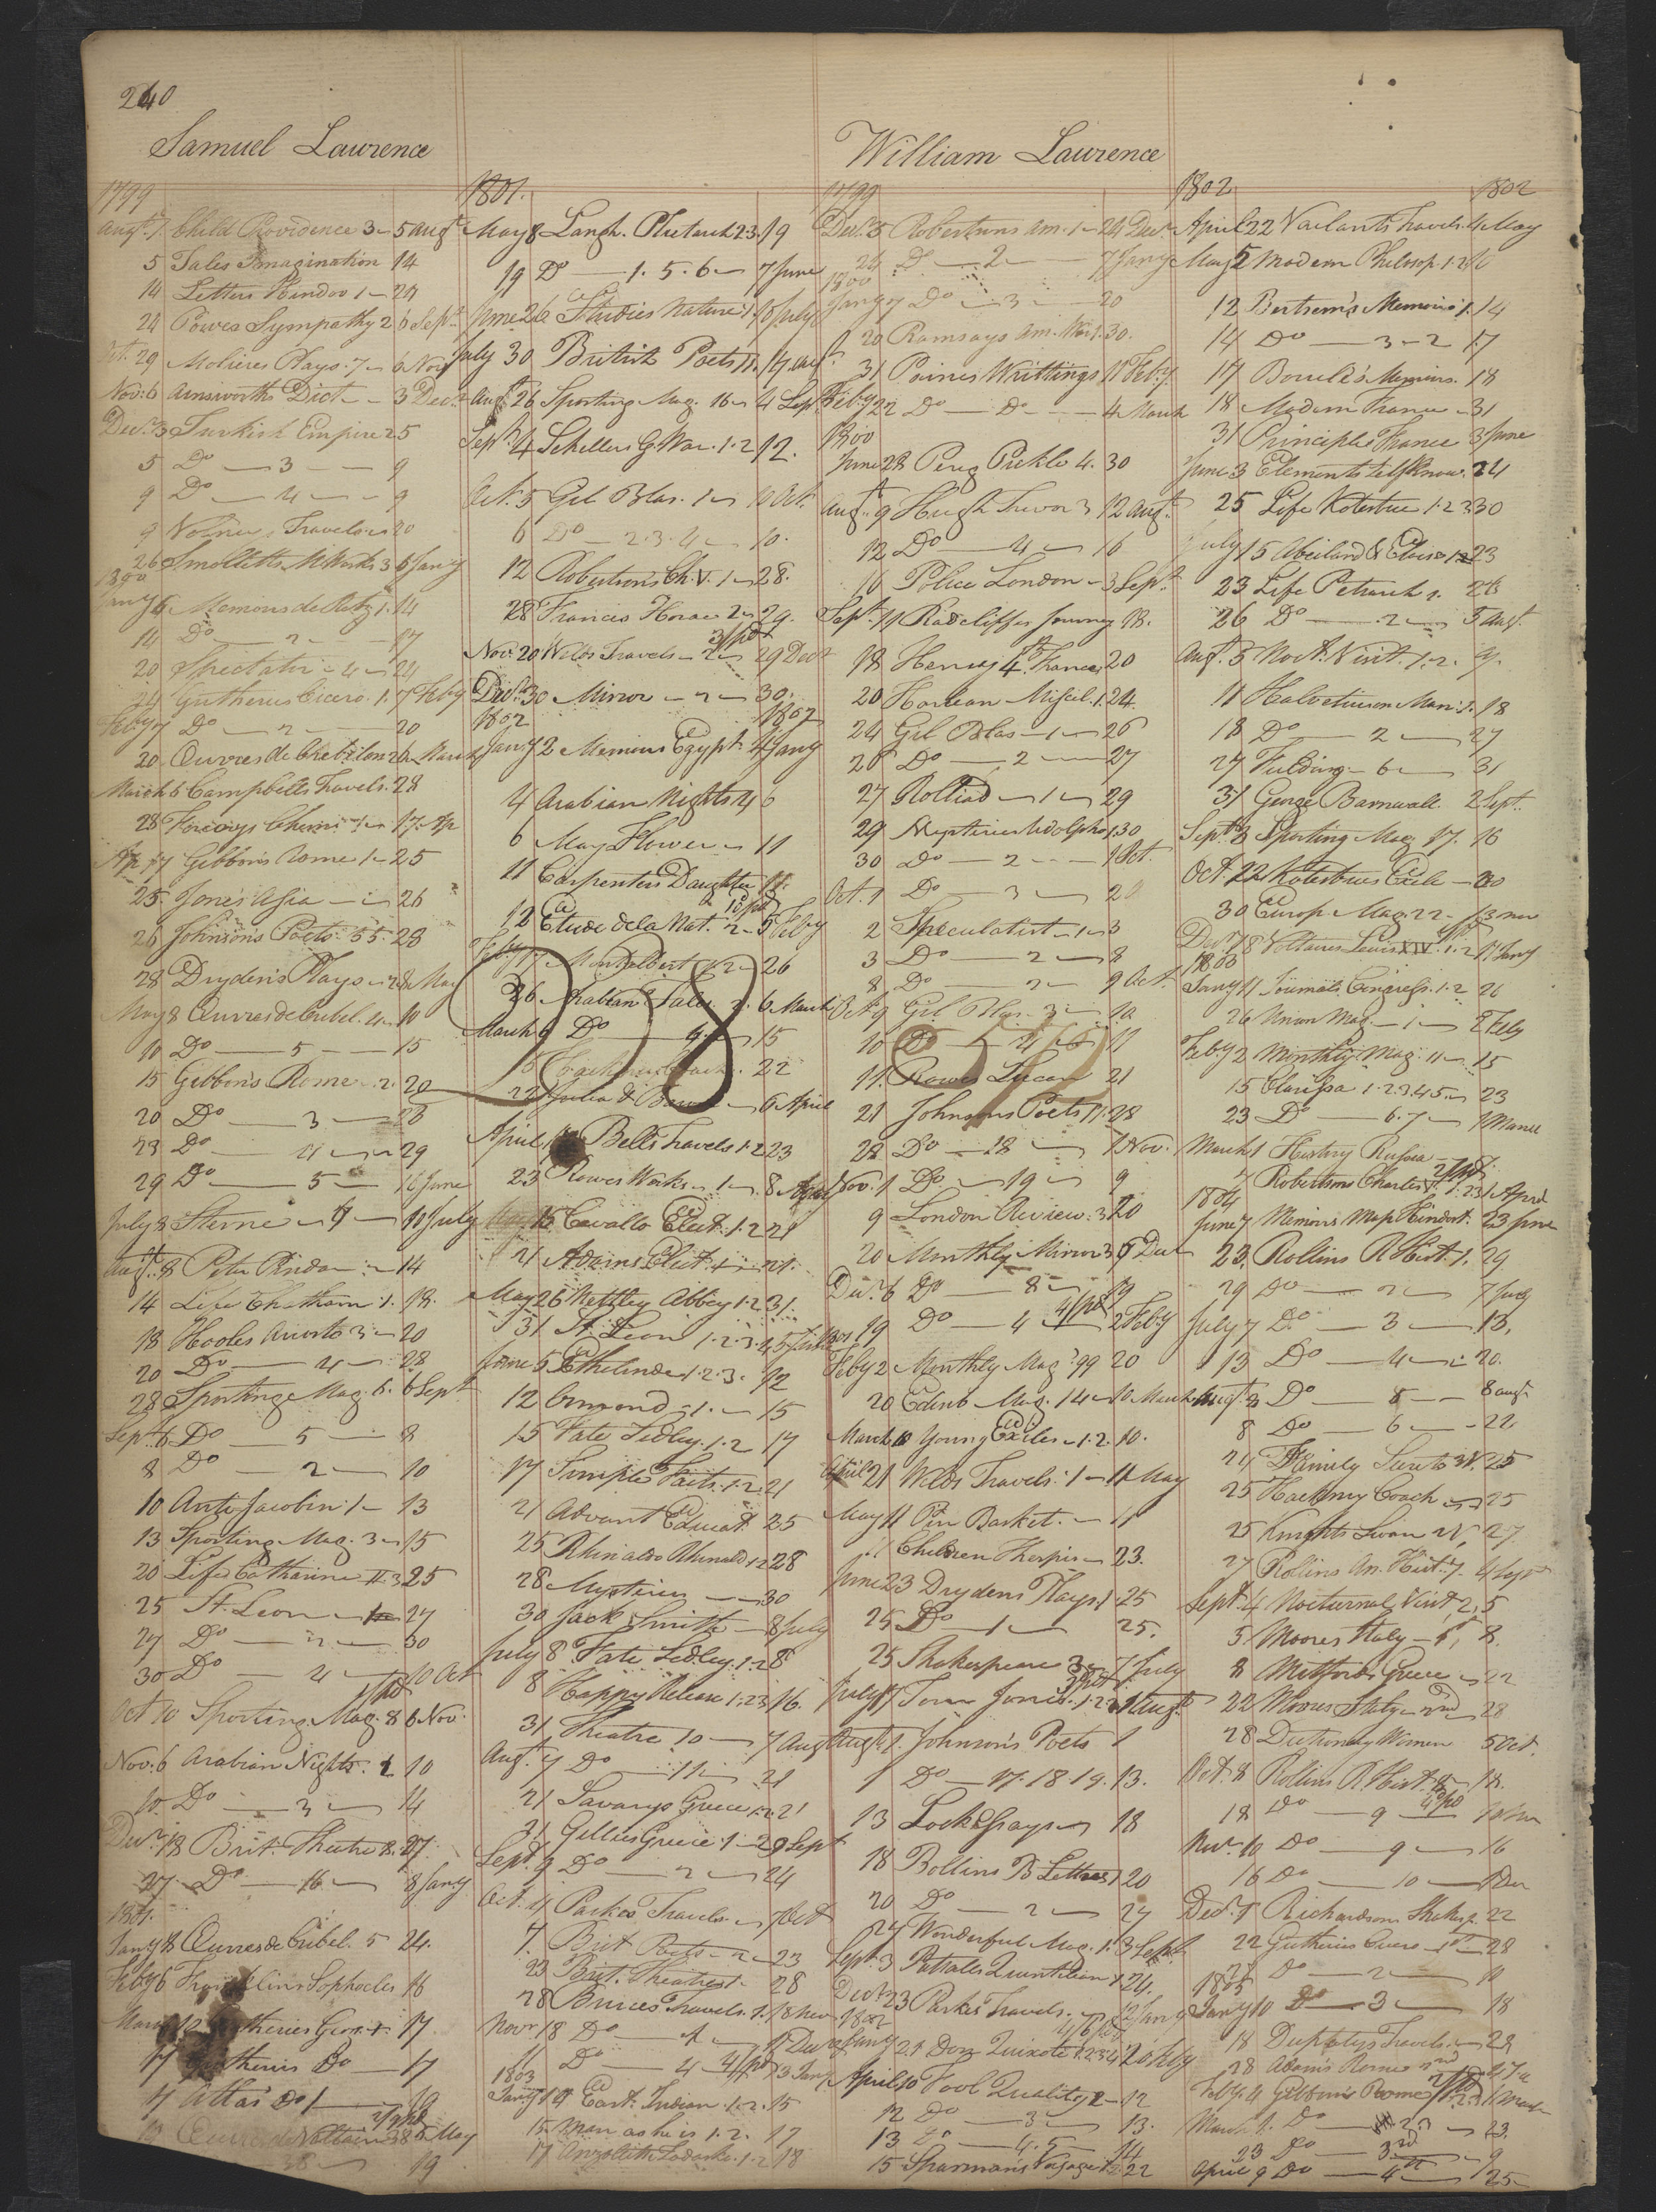 240
Samuel Lawrence
1799
Augt. 1 Child Providence 3 5 Augt
5 Tales Imagination 14
14 Letters Hindoo 1 24
24 Power Sympathy 2 6 Sept
Oct. 29 Molieres Plays. 7 6 Nov
Nov. 6 Ainsworths Dict 3 Decr
Decr. 3 Turkish Empire 2 5
5 Do 3 9
9 Do 4 9
9 Volneys Travels 20
26 Smolletts Works 3 6 Jany
1800
Jany 6 Memoirs de Retz 1. 14
14 Do 2 17
20 Spectator 4 24
24 Gutheries Cicero. 1. 7 Feby
Feby 7 Do 2 20
20 Œuvres de Crebilon 2 6 March
March 6 Campbells Travels. 28
28 Forcroys Chemi 17. Ap
Ap 17 Gibbons Rome 1 25
25 Jones Asia 26
26 Johnsons Poets. 55. 28
28 Drydens Plays 2 8 May
May 8 Œuvres de Crebel. 4 10
10 Do 5 15
15 Gibbons Rome 2 20
20 Do 3 23
23 Do 4 29
29 Do 5 16 June
July 8 Sterne 10 July
Augt. 8 Peter Pindar 14
14 Life Chatham 1. 18.
18 Hooles Ariosto 3 20
20 Do 4 28
28 Sporting Mag. 6. 6 Sept
Sept. 6 Do 5 8
8 Do 2 10
10 Anti Jacobin 1 13
13 Sporting Mag. 3 15
20 Life Catharine II. 3 25
25 St. Leon 1 27
27 Do 2 30
30 Do 4 10 Oct
Oct 10 Sporting Mag. 8 6 Nov.
Nov. 6 Arabian Nights. 10
10. Do 3 14
Decr. 18 Brit. Theatre 8. 27.
27. Do 16 8 Jany
1801.
Jany 8 Œuvres de Crebel. 5 24.
Feby 6 Franklins Sophocles 16
12 Gutheries Geog. 17
17 Gutheries Do 17
17 Atlas Do 1 19
Voltaire 38 8 May
38 19
1801.
May 8 Langh. Plutarch 2.3. 19
19 Do 1. 5. 6 7 June
June 26 Studies Nature. 1. 10 July
July 30 British Poets 11. 14 Augt
Augt 26 Sporting Mag. 16 4 Sept
Sept. 4 Schellers G. War. 1. 2 12.
Oct. 5 Gil Blas. 1 6 Oct.
6 Do 2. 3. 4 10.
12 Robertsons Ch. V. 1 28.
28 Francis Horace 2 29.
Nov. 20 Welds Travels 2 29 Decr
Decr. 30 Mirror 2 30.
1802 1802
Jany 2 Memoirs Egypt 4 Jany
4 Arabian Nights 4 6
6 May Flower 11
11 Carpenters Daughter 11.
12 Etude de la Nat. 2 5 Feby
Feby 17 26
26 Arabian Tales 2. 6 March
March 9 Do 4. 15
15 22
22 Julia de 6 April
April Bells Travels 1. 2 23
23 Rowes Works 1 8
Cavallo Elect. 1. 2 21
21 Adams Elect. 21.
May 26 Nettley Abbey 1. 2. 31.
31 St. Leon 1. 2. 3. 4 5 June
June 5 Ethelinde 1. 2. 3. 12
12 Ormond 1. 15
15 Fate Sedley. 1. 2 17
17 Simples Facts. 1. 2. 21
21 Advant Educat. 25
25 Rhinaldo Rhinald 1. 2 28
28 Mysteries 30
30 Jack Smith 8 July
July 8 Fate Sedley. 1. 2 8
8 Happy Release 1. 2 3 16.
31 Theatre 10 7 Aug
Augt. 7 Do 11 21
21 Savarys Greece 1. 2. 21
21 Gillies Greece 1 29 Sept
Sept. 9 Do 2 24
Oct. 4 Parkes Travels 7 Oct
7. Brit Poets 2 23
23 Brit. Theatre 28
28 Bruces Travels. 1. 18 Nov
Novr 18 Do
Do 4 3 Jany
1803
Jany 14 East Indian. 1. 2. 15
15 Man as he is 1. 2. 17
17 1. 2 18
98
William Lawrence
1799
Decr. 23 Robertsons Am. 1 24 Decr
24 Do 2 7 Jany
1800
Jany 7 Do 3 20
20 Ramsays Am. 30.
31 Paines Writtings 11 Feby.
Feby 22 Do Do 4 March
1800
June 28 Pereg Pickle 4. 30
Augt. 9 Hugh Trevor 3 12 Augt.
12 Do 4 16
16 Police London 3 Sept.
Sept. 11 Radcliffes Journey 18.
18 Henry 4th France 20
20 Harlean Miscel. 1. 24.
24 Gil Blas 1 26
26 Do 2 27
27 Rolliad 1 29
29 Mysteries Udolpho 1. 30
30 Do 2 1 Oct.
Oct. 1 Do 3 2
2 Speculatist 1 3
3 Do 2 8
8. Do 9 Oct.
Oct. 9 Gil Blas. 3 10
10 Do 4 11
11. Rowes Lucan 21
21 Johnsons Poets 17. 28
28 Do 18 1 Nov.
Nov. 1 Do 19 9
9 London Review. 3 20
20 Monthly Mirror 3 6 Decr
Decr. 6 Do 8 19
1801 19 Do 4 2 Feby
Feby 2 Monthly Mag. 99 20
20 Edinb Mag. 14 10 March
March 10 Young Exiles 1. 2. 10.
April 21 Welds Travels. 1 11 May
May 11 Pin Basket. 11
11 Children Thespis 23.
June 23 Drydens Plays 1 25
25 Do 1 25.
25 Shakespeare 3 7 July
July 17 Tom Jones. 1. 2. 3 1 Augt
Augt 1. Johnsons Poets 1
1 Do 17. 18 19. 13.
13 Lock Essays 18
18 Rollins B Lettres 1 20
20 Do 2 27
27 Wonderful Mag. 1. 3 Sept.
Sept. 3 Patsales Quintilian 1 24.
Oct 23 Parkes Travels. 12 Jany
1802
Jany 21 Don Quixote 1. 2. 3 4 26 Feby
April 10 Fool Quality 2 12
12 Do 3 13.
13 Do 4. 5 14
15 Sparmans Voyage 1. 2 22
1802 1802
April 22 Vailants Travels. 4 May
May 5 Modern Philosop. 1. 2 6
12 Bertrems Memoirs. 1. 14
14 Do 3 2 17
17 Memoirs. 18
18 Modern France 31
31 Principles France 3 June
June 3 Elements Self Know. 24
25 Life Kotzebue 1. 2 3 30
July 15 Abeilard & Eloisa 1. 2 23
23 Life Petrarch 1. 26
26 Do 2 5 Augt.
Augt. 5 Noct. Visit. 1. 2. 9.
11 Helvetius on Man. 1. 18
18 Do 2 27
27 Fielding 6 31
31 George Barnwell. 2 Sept.
Septr. 3 Sporting Mag 17. 16
Oct. 22 Kotzebues Exile 30
30 Europ. Mag. 22 13 Nov
Decr. 18 Voltaires Lewis XIV. 1. 2 17 Jany
1803
Jany 11 Journals Congress. 1. 2 26
26 Union Mag. 1 2 Feby
Feby 2 Monthly Mag. 11 15
15 Clarissa 1. 2. 3. 4. 5 23
23 Do 6. 7 1 March
March 1 History Russia 7.
7 Robertsons Charles V. 1. 2 3 1 April
1804
June 7 Memoirs Map Hindost. 23 June
23. Rollins R Hist. 1. 29
29 Do 2 7 July
July 7 Do 3 13.
13 Do 4 20.
Augt. 3 Do 5 8 Augt
8 Do 6 22
24 Family Secrets 3 V. 25
25 Hackney Coach 25
25 Knights Swan 2 V. 27
27 Rollins An. Hist. 7. 4 Sept
Sept. 4 Nocturnal Visit, 2, 5
5. Moores Italy 1st, 8.
8 Mitfords Greece 22
22 Moores Italy 2nd 28
28 Dictionary Women 5 Oct.
Oct. 8 Rollins R Hist. 8 18.
18 Do 9 10 Nov
Novr. 10 Do 9 16
16 Do 10 1 Decr
Decr. 1 Richardsons Shakesp. 22
22 Gutheries Cicero 1st 28
28 Do 2 10
1805
Jany 10 Do 3 18
18 Travels. 28
28 Adams Rome 2nd
Feby. 4 Gibbons Rome
March 1. Do 2. 23.
23 Do 3rd 9
April 9 Do 4th 25